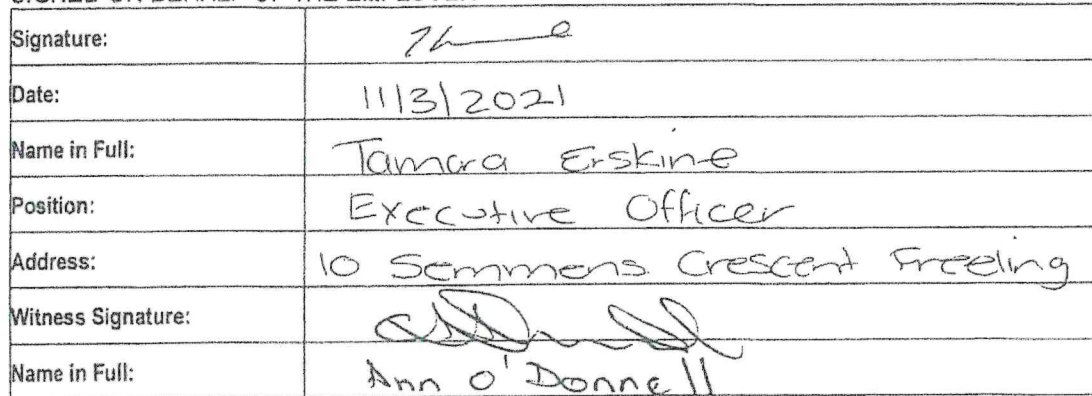 Signature:
Date: 11/3/2021
Name in Full: Tamara Erskine
Position: Executive Officer
Address: 10 Semmens Crescent Freeling
Witness Signature:
Name in Full: Ann O'Donnell